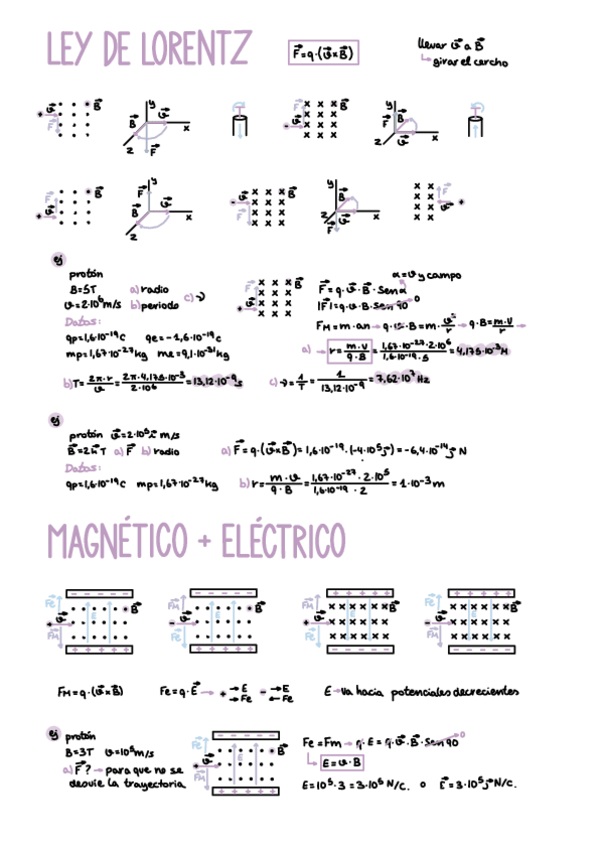 LEY DE LORENTZ
F⃗=q·(v⃗×B⃗)
llevar v⃗ a B⃗
↳ girar el corcho
+ v⃗ F⃗ B⃗
y B⃗ v⃗ x z F⃗
+ v⃗ F⃗ x x x x B⃗
y B⃗ v⃗ x z F⃗
+ v⃗ F⃗ B⃗
y F⃗ B⃗ v⃗ x z
- v⃗ F⃗ x x x x B⃗
y B⃗ v⃗ x z F⃗
x x F⃗ v⃗ +
ej
protón
B=5T a) radio
v=2·10⁶m/s b) periodo c) ν
Datos:
qp=1,6·10⁻¹⁹C qe=-1,6·10⁻¹⁹C
mp=1,67·10⁻²⁷kg me=9,1·10⁻³¹kg
+ v⃗ F⃗ x x x x B⃗
α=v y campo
F⃗=q·v⃗·B⃗·Senα
|F⃗|=q·v·B·sen90
FM=m·an → q·v·B=m·v²/r → q·B=m·v/r →
a) → r=m·v/q·B=1,67·10⁻²⁷·2·10⁶/1,6·10⁻¹⁹·5=4,175·10⁻³M
b) T=2π·r/v=2π·4,175·10⁻³/2·10⁶=13,12·10⁻⁹s
c) ν=1/T=1/13,12·10⁻⁹=7,62·10⁷Hz
ej
protón v⃗=2·10⁵i⃗ m/s
B⃗=2k⃗ T a) F⃗ b) radio
a) F⃗=q·(v⃗×B⃗)=1,6·10⁻¹⁹·(-4·10⁵j⃗)=-6,4·10⁻¹⁴j⃗ N
Datos:
qp=1,6·10⁻¹⁹C mp=1,67·10⁻²⁷kg
b) r=m·v/q·B=1,67·10⁻²⁷·2·10⁵/1,6·10⁻¹⁹·2=1·10⁻³m
MAGNÉTICO + ELÉCTRICO
- - - - - Fe + v⃗ FM E B⃗ + + + + +
- - - - - FM - v⃗ Fe E B⃗ + + + + +
+ + + + + FM + v⃗ Fe x x x x x x B⃗ - - - - -
+ + + + + Fe - v⃗ FM x x x x x x B⃗ - - - - -
FM=q·(v⃗×B⃗)
Fe=q·E⃗ → + →E →Fe - →E ←Fe
E→va hacia potenciales decrecientes
ej protón
B=3T v=10⁵m/s
a) F⃗? → para que no se
desvíe la trayectoria
- - - - - Fe + v⃗ FM E B⃗ + + + + +
Fe=Fm → q·E=q·v⃗·B⃗·sen90
↳ E=v·B
E=10⁵·3=3·10⁵N/C. o E⃗=3·10⁵j⃗ N/C.